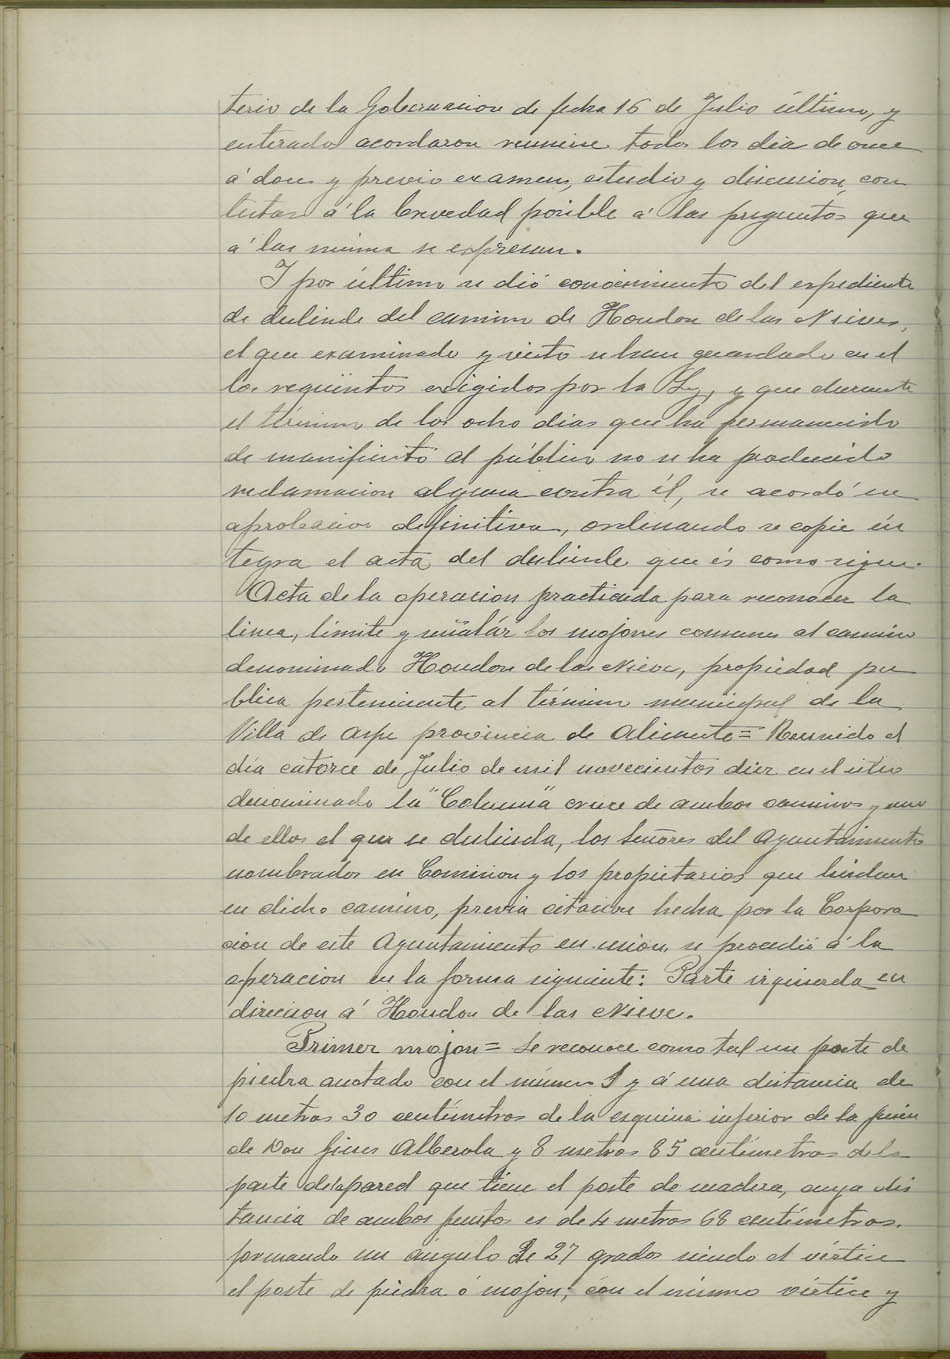 terio de la Gobernacion de fecha 16 de Julio último, y
enterados acordaron reunirse todos los dia de once
á doce y previo examen, estudio y discusion, con
testar á la brevedad posible á las preguntas que
á las misma se expresan.
Y por último se dió conocimiento del expediente
de deslinde del camino de Hondon de las Nieves,
el que examinado y visto se han guardado en el
los requisitos exigidos por la Ley, y que durante
el término de los ocho dias que ha permanecido
de manifiesto al público no se ha producido
reclamacion alguna contra él, se acordó su
aprobacion definitiva, ordenando se copie ín
tegra el acta del deslinde que és como sigue.
Acta de la operacion practicada para reconocer la
linea, límite y señalár los mojones comunes al camino
denominado Hondon de las Nieve, propiedad pu
blica perteneciente al término municipal de la
Villa de Aspe provincia de Alicante = Reunido el
día catorce de Julio de mil novecientos diez en el sitio
denominado la "Columna" cruce de ambos caminos y uno
de ellos el que se deslinda, los Señores del Ayuntamiento
nombrados en Comision y los propietarios que lindan
en dicho camino, previa citacion hecha por la Corpora
cion de este Ayuntamiento en union se procedió á la
operacion en la forma siguiente: Parte izquierda en
direccion á Hondon de las Nieve.
Primer mojon = Se reconoce como tal un poste de
piedra anotado con el número 1 y á una distancia de
10 metros 30 centímetros de la esquina inferior de la finca
de Don Gines Alberola y 8 metros 85 centímetros de la
parte de la pared que tiene el poste de madera, cuya dis
tancia de ambos puntos es de 4 metros 68 centímetros.
formando un ángulo de 27 grados siendo el vértice
el poste de piedra ó mojon; con el mismo vértice y